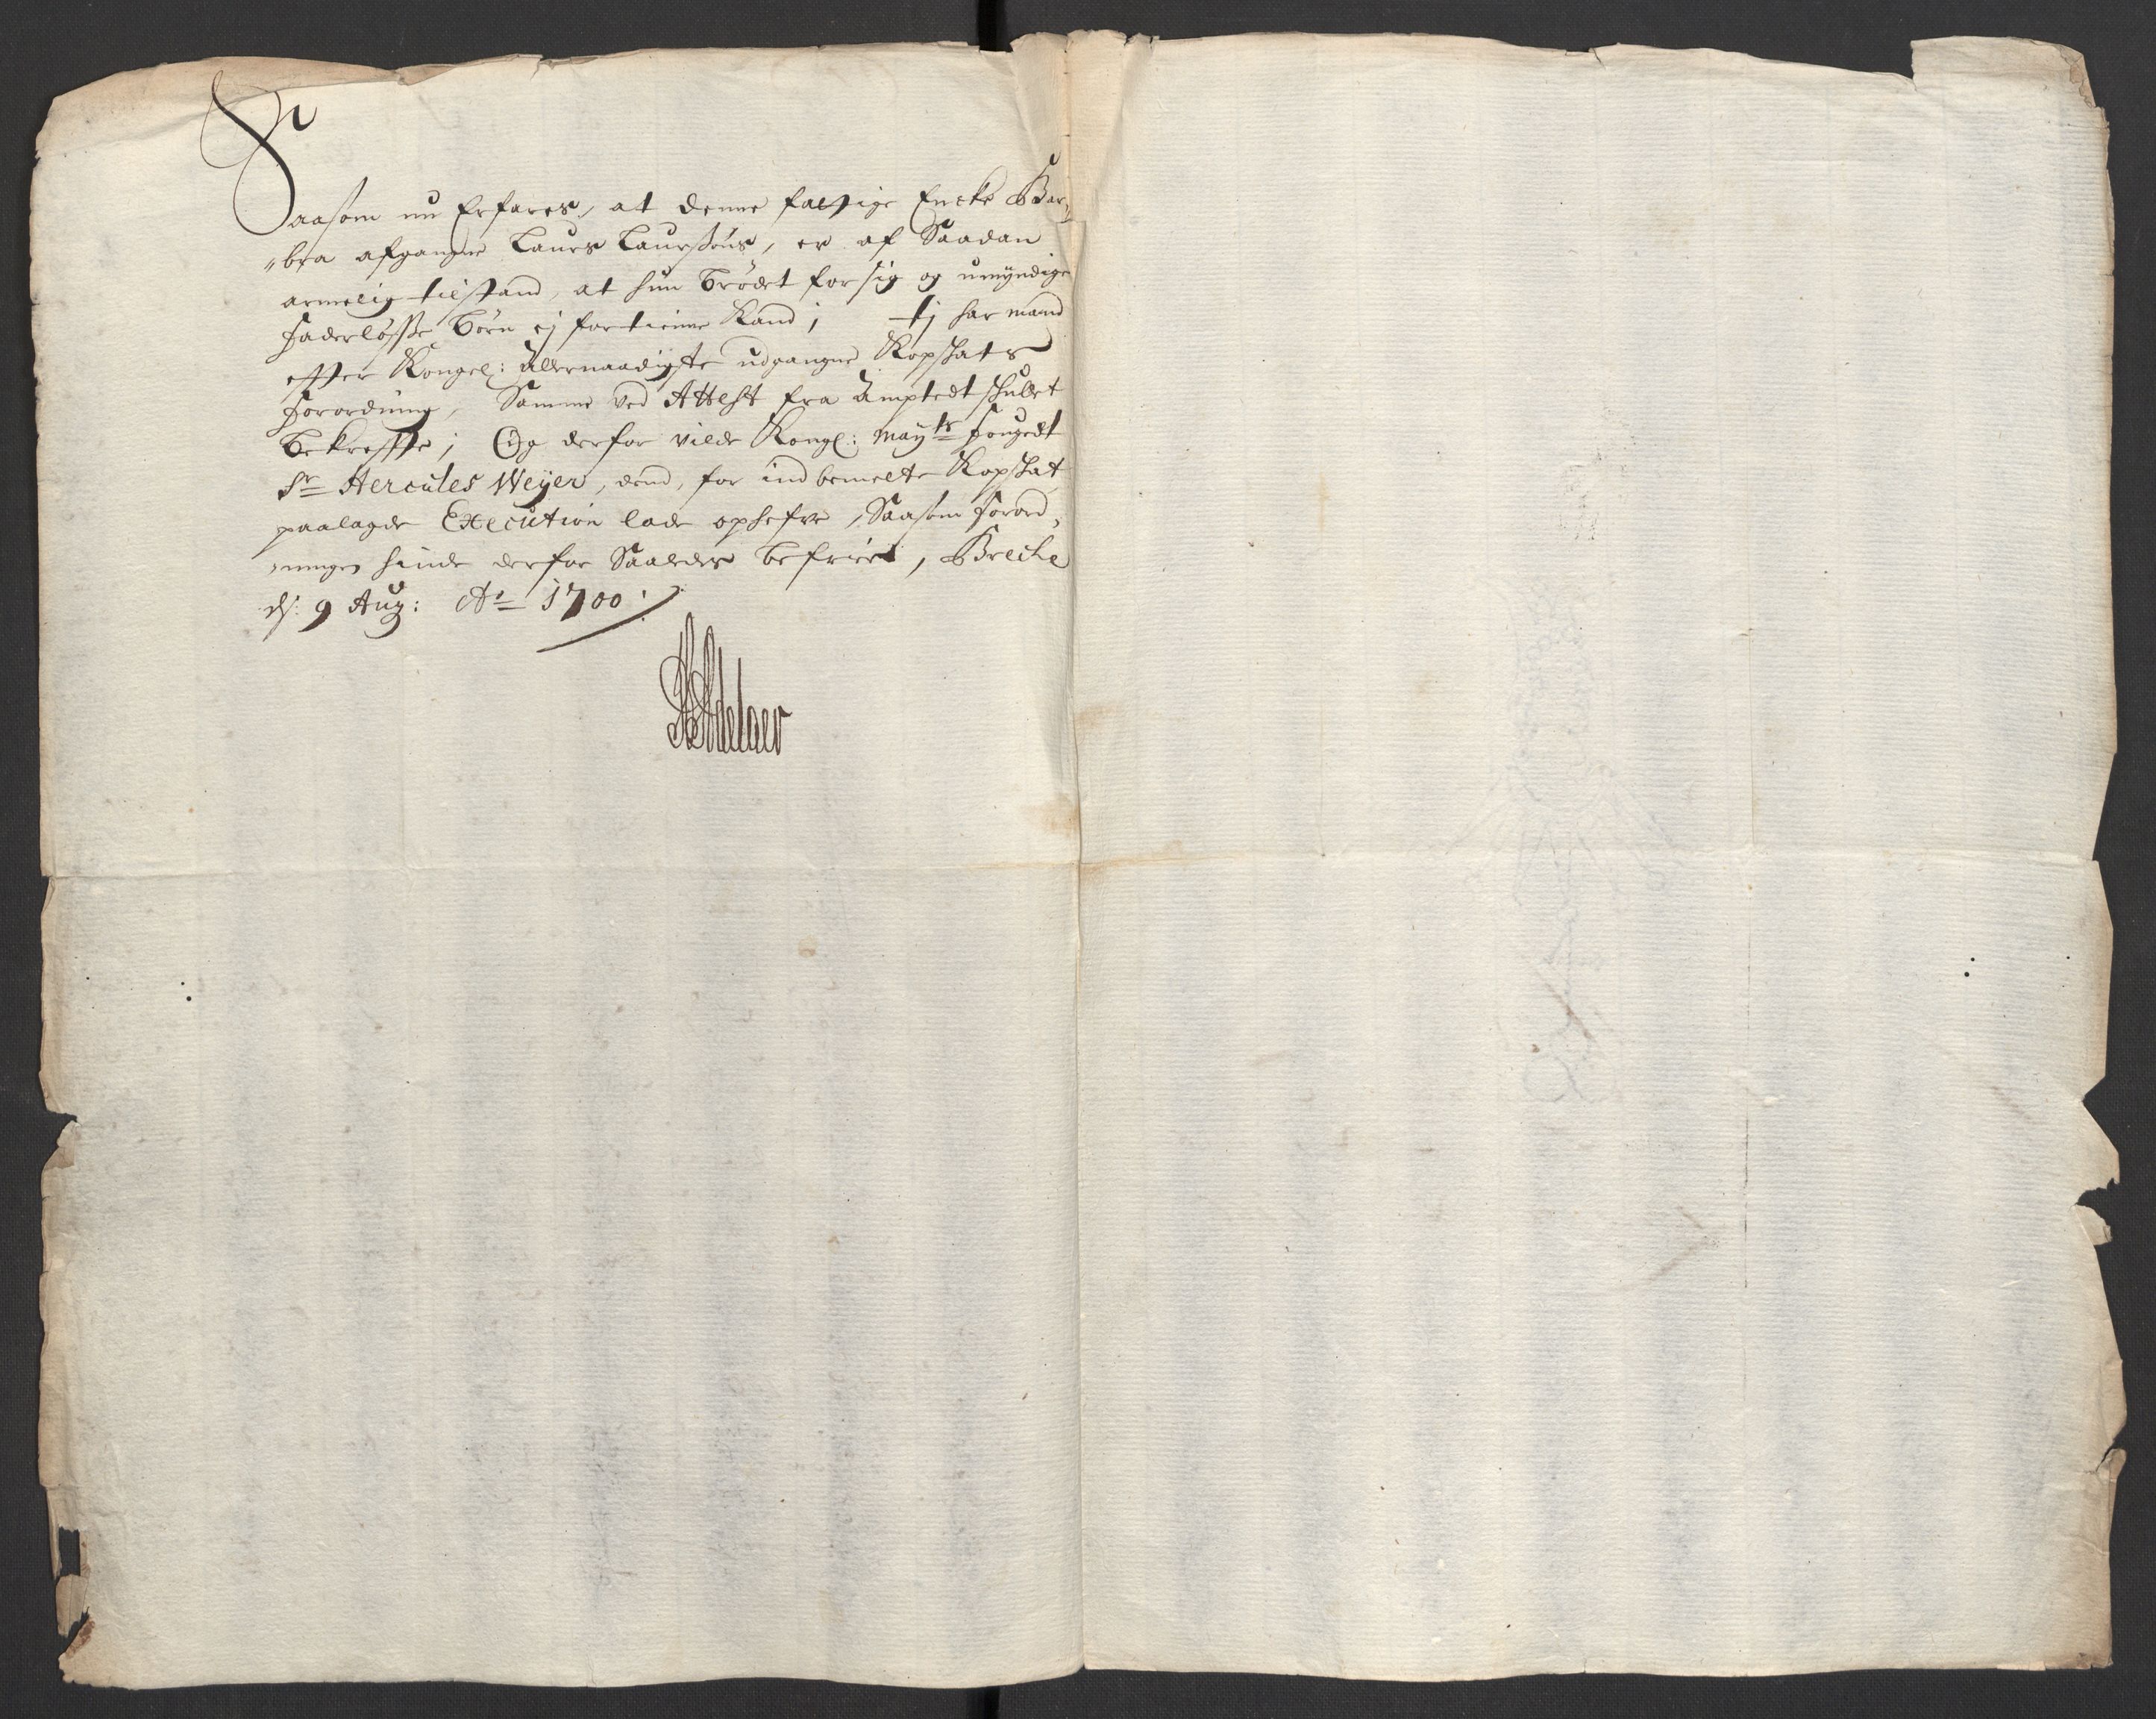 Saasom nu Erfares, at denne fattige Encke Bar,
"bra afgangne Laurs Laursøns, er af Saadan
armelig tilstand, at hun brødet for sig og umyndige
Faderløsse børn ej fortienne Kand; tj har mand
effter Kongel: allernaadigste udgangne Kopskats
Forordning, Samme ved Attest fra Amptedt skullet
bekreffte; Og derfor vilde Kongl: Mayts Fougedt
Sr Hercules Weyer, dend, for ind bemelte Kopskat
paalagde Execution lade ophefve, Saasom Forord,
"ningen hinde derfor Saaledes befrier, Breche
ds: 9 Aug: Ao 1700.
Adelaer